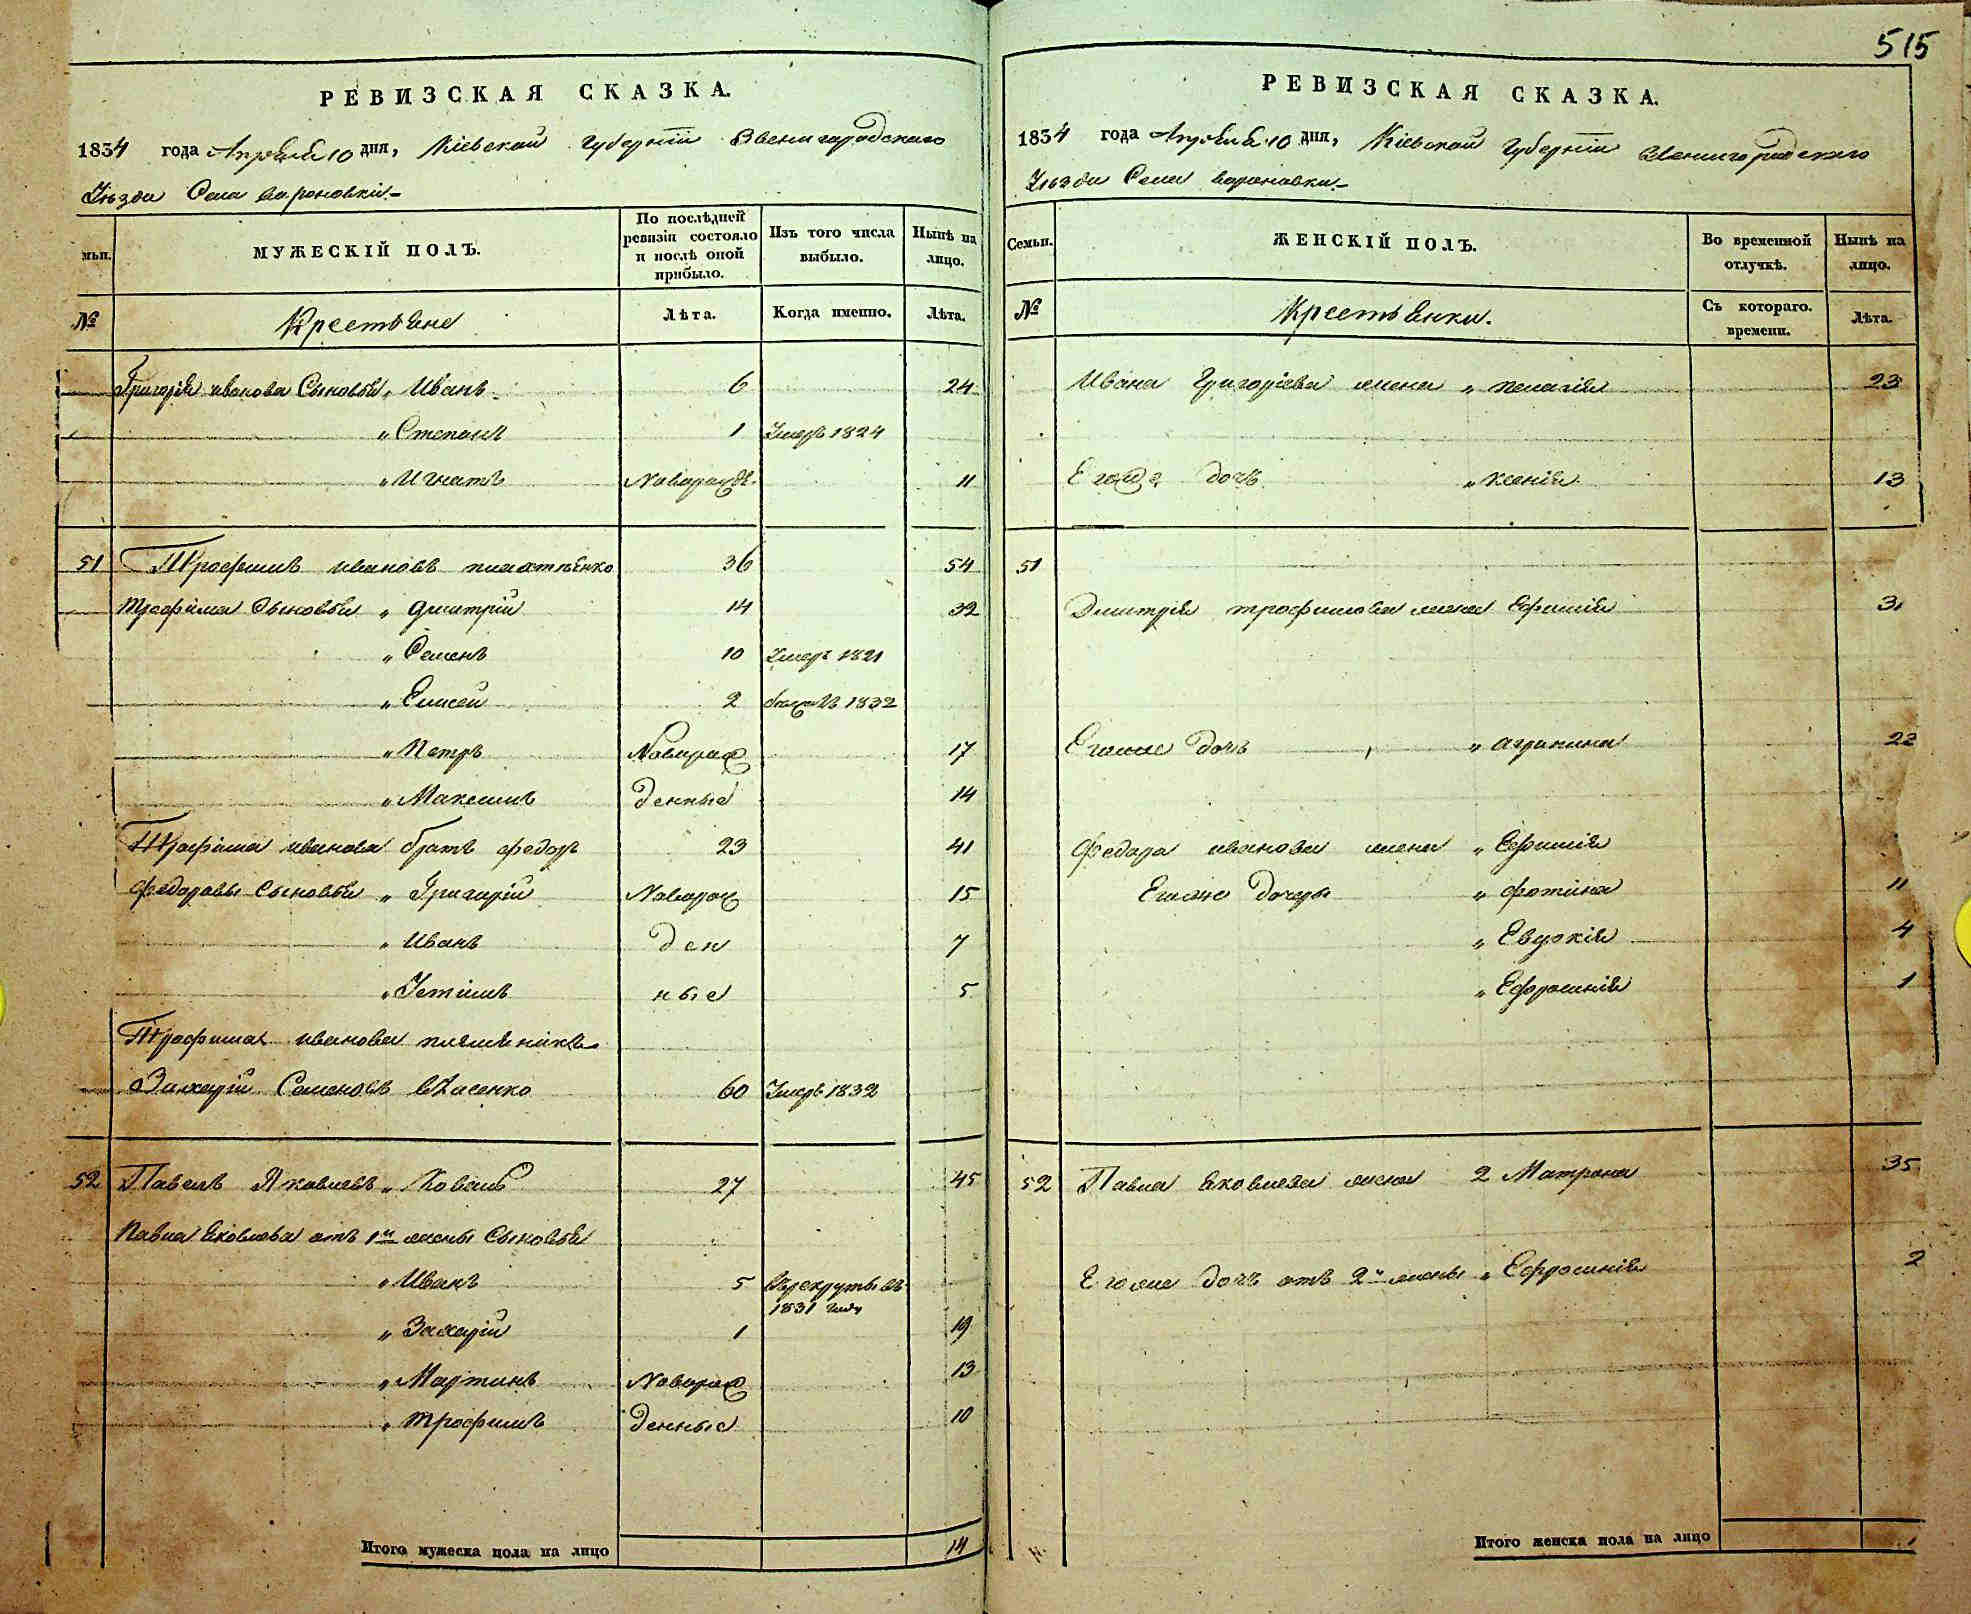 515
РЕВИЗСКАЯ СКАЗКА.
1834 года Апреля 10 дня, Кіевской Губерніи Звенигородскаго
Уѣзда Села Вороновки
мьи.
МУЖЕСКІЙ ПОЛЪ.
По послѣдней ревизіи состояло и послѣ оной прибыло.
Изъ того числа выбыло.
Нынѣ на лицо.
№
Крестьяне
Лѣта.
Когда именно.
Лѣта.
Григорія иванова Сыновья „ Иванъ 6 24
„ Степанъ 1 Умеръ 1824
„ Игнатъ Новорожд. 11
51 Трофимъ ивановъ 36 54
Трофима Сыновья „ Дмитрій 14 32
„ Семенъ 10 Умеръ 1821
„ Елисей 2 1832
„ Петръ Новорож 17
„ Максимъ денные 14
Трофима иванова братъ федоръ 23 41
федоровы Сыновья „ Григорій Новорож 15
„ Иванъ ден 7
„ Устимъ ные 5
Трофима иванова племѣникъ
Захарій Семеновъ Власенко 60 Умеръ 1832
52 Павелъ Яковлевъ „ Коваль 27 45
Павла Яковлева отъ 1й жены Сыновья
„ Иванъ 5 Въ рекруты въ 1831 году
„ Захарій 1 19
„ Мартинъ Новорож 13
„ Трофимъ денные 10
Итого мужеска пола на лицо 14
РЕВИЗСКАЯ СКАЗКА.
1834 года Апреля 10 дня, Кіевской Губерніи Звенигородскаго
Уѣзда Села Вороновки
Семьи.
ЖЕНСКІЙ ПОЛЪ.
Во временной отлучкѣ.
Нынѣ на лицо.
№
Крестьянки.
Съ котораго. времени.
Лѣта.
Ивана Григоріева жена „ пелагія 23
Егожъ дочь „ ксенія 13
51
Дмитрія трофимова жена Ефимія 31
Егоже дочь „ агрипина 22
Федора иванова жена „ Ефимія
Егоже дочери „ фотина 11
„ Евдокія 4
„ Ефросинія 1
52 Павла Яковлева жена 2 Матрона 35
Егоже дочь отъ 2й жены „ Ефросинія 2
Итого женска пола на лицо